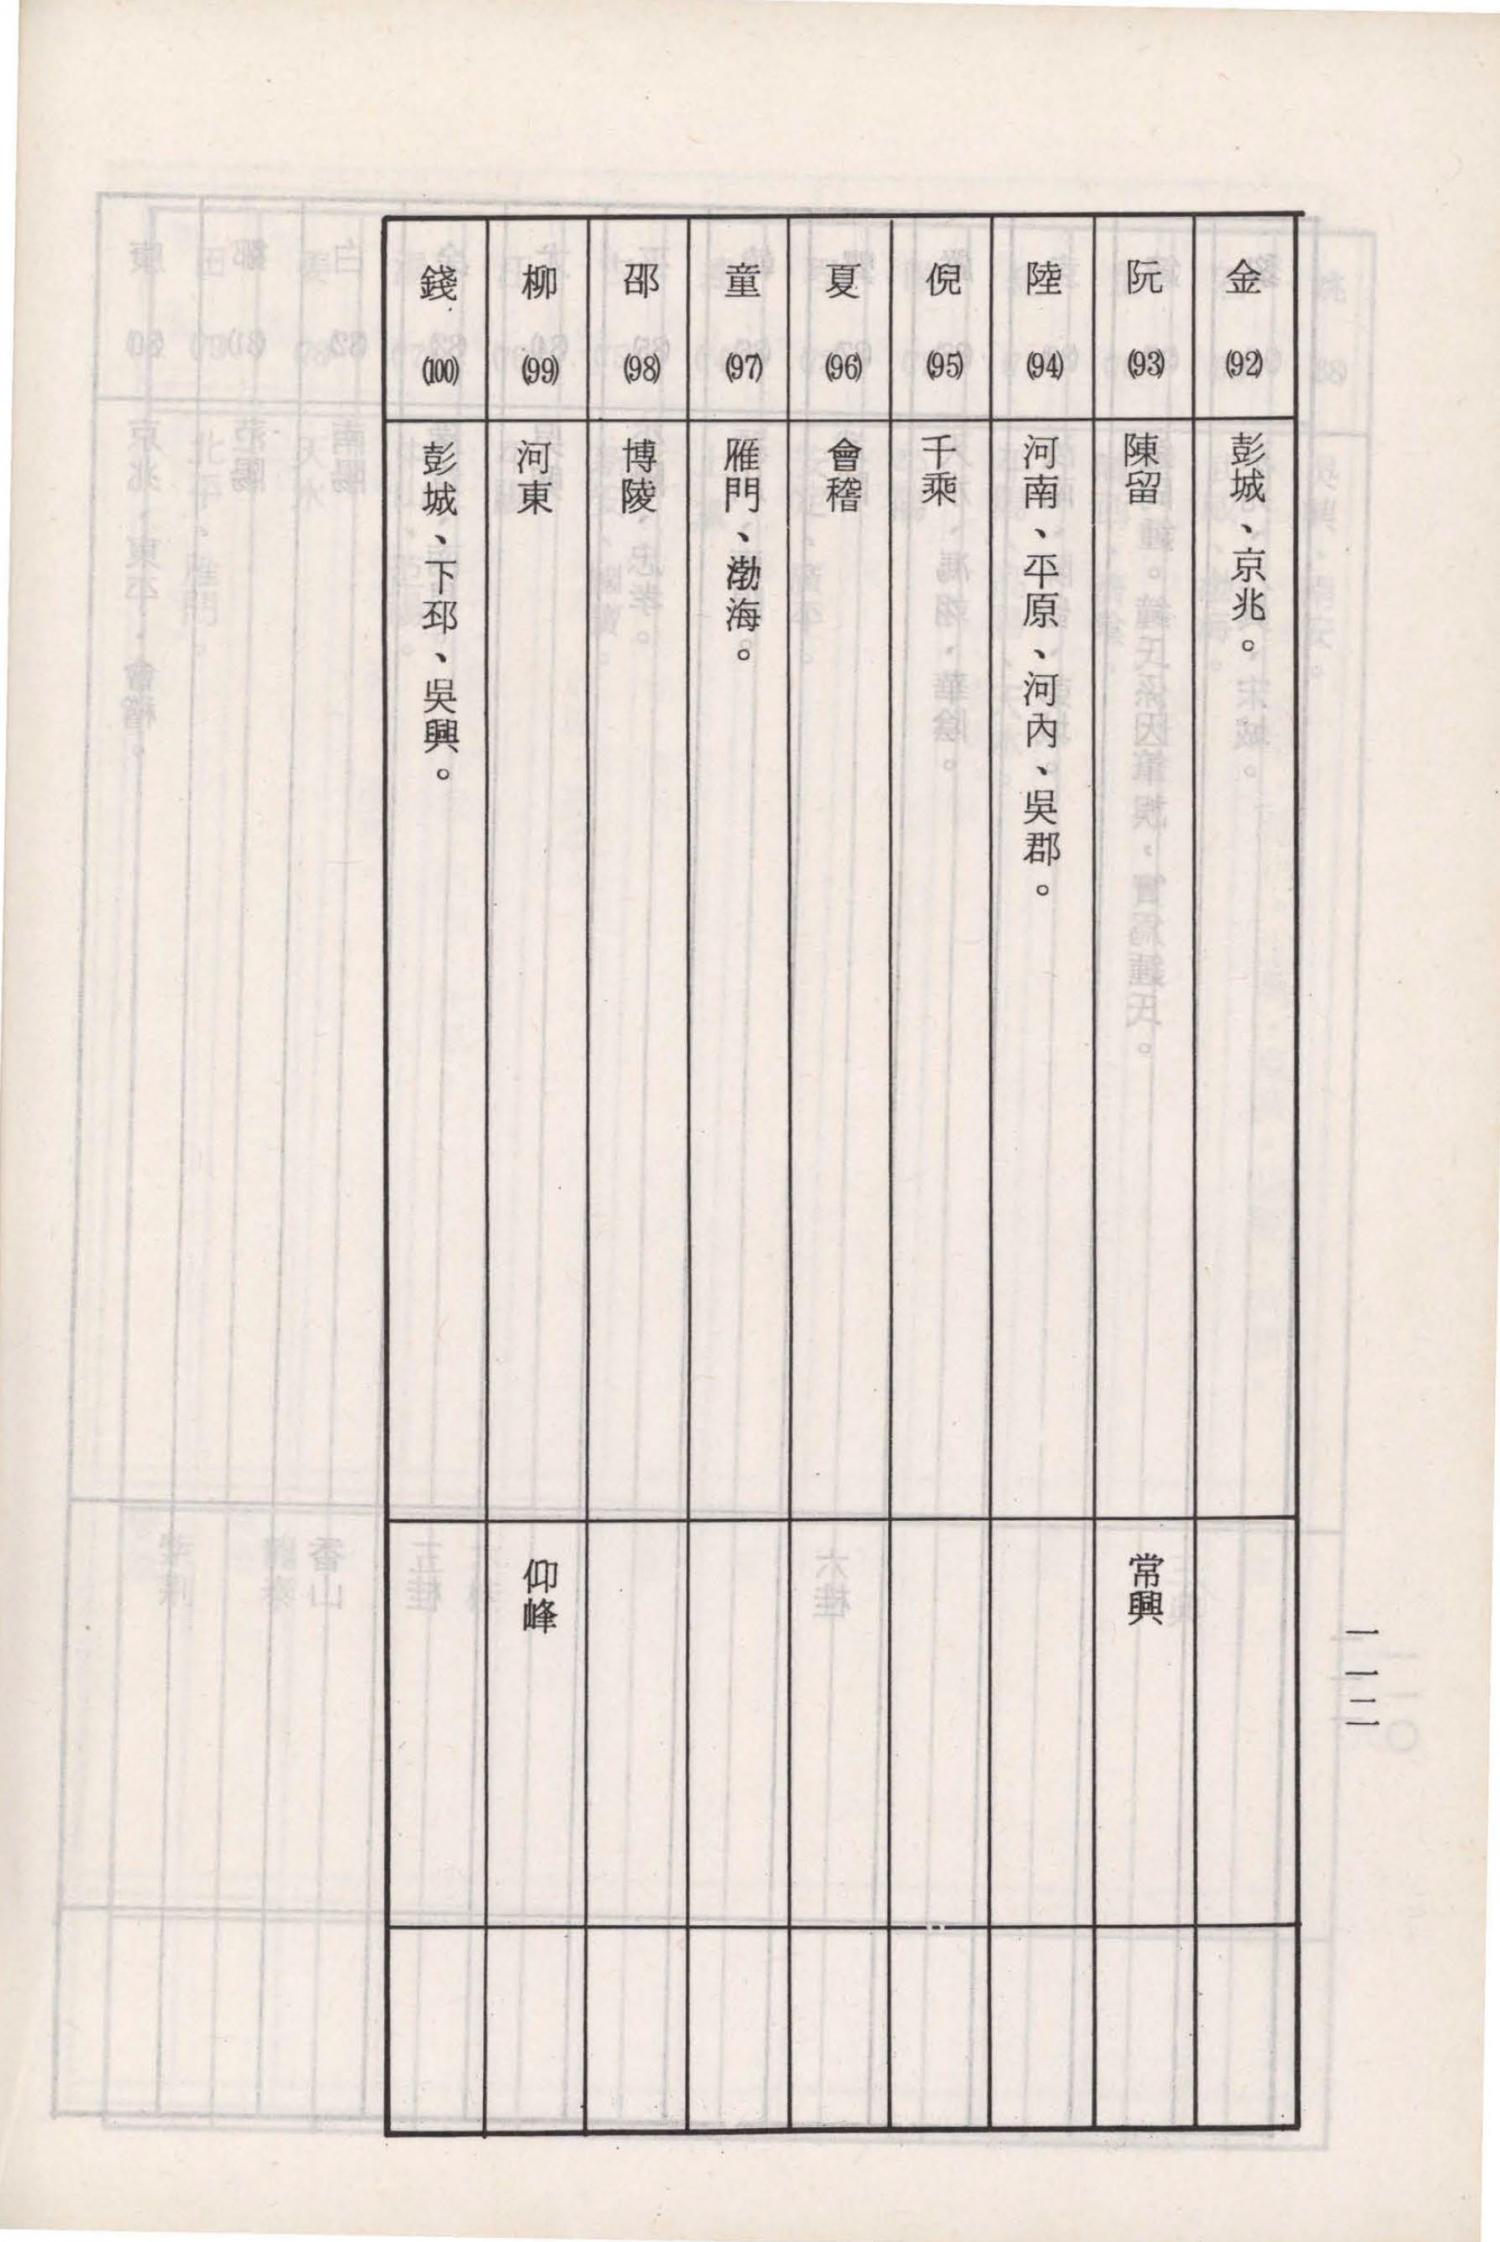 金(92)
彭城、京兆。
阮(93)
陳留
常興
陸(94)
河南、平原、河內、吳郡。
倪(95)
千乘
夏(96)
會稽
童(97)
雁門、渤海。
邵(98)
博陵
柳(99)
河東
仰峰
錢(100)
彭城、下邳、吳興。
一一二